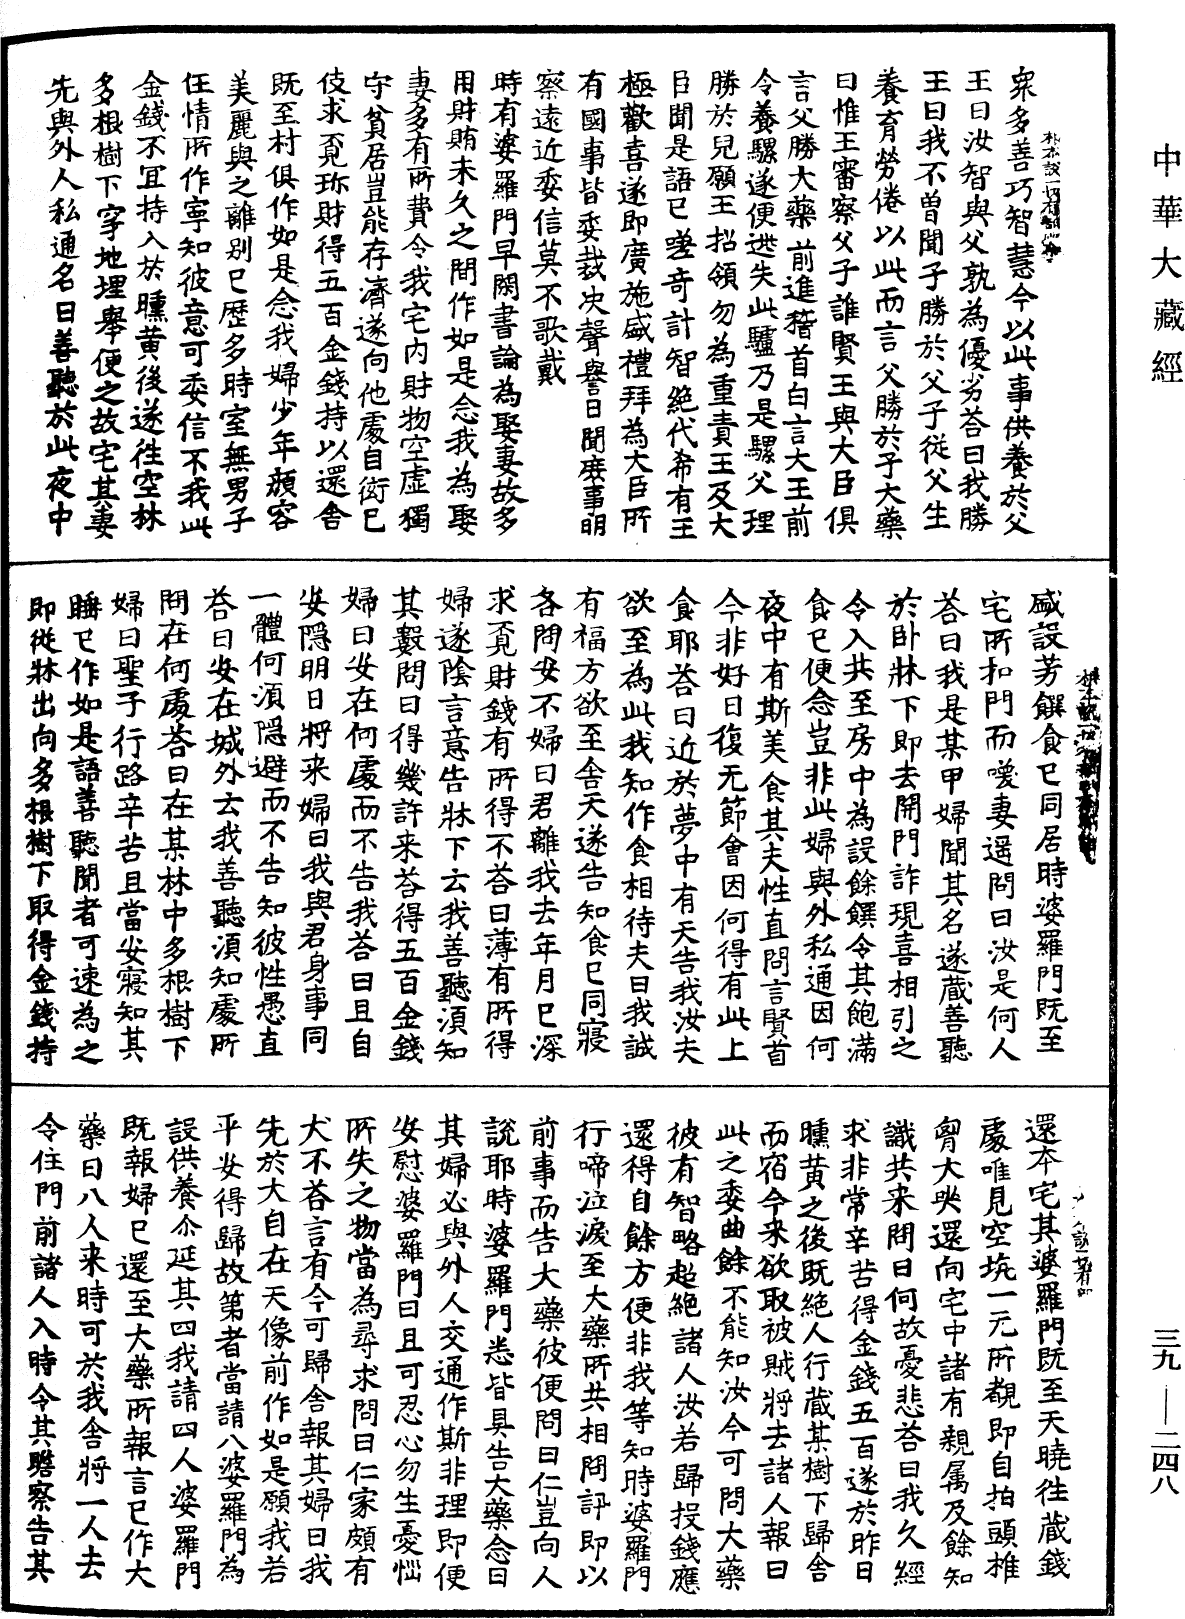 中華大藏經
衆多善巧智慧今以此事供養於父
王曰汝智與父孰為優劣荅曰我勝
王曰我不曽聞子勝於父子從父生
養育勞倦以此而言父勝於子大藥
曰惟王審察父子誰賢王與大臣俱
言父勝大藥前進稽首白言大王前
令養騾遂便迯失此驢乃是騾父理
勝於兒願王招領勿為重責王及大
臣聞是語已嗟奇計智絶代希有王
極歡喜遂即廣施盛禮拜為大臣所
有國事皆委裁决聲譽日聞庶事明
察遠近委信莫不歌戴
時有婆羅門早閑書論為娶妻故多
用財賄未久之間作如是念我為娶
妻多有所費令我宅内財物空虛獨
守貧居豈能存濟遂向他處自衒已
伎求覓珎財得五百金錢持以還舍
既至村俱作如是念我婦少年顏容
美麗與之離別已歷多時室無男子
任情所作寧知彼意可委信不我此
金錢不冝持入於曛黄後遂往空林
多根樹下穿地埋舉便之故宅其妻
先與外人私通名曰善聽於此夜中
盛設芳饌食已同居時婆羅門既至
宅所扣門而喚妻遥問曰汝是何人
荅曰我是某甲婦聞其名遂藏善聽
於卧牀下即去開門詐現喜相引之
令入共至房中為設餘饌令其飽滿
食已便念豈非此婦與外私通因何
夜中有斯美食其夫性直問言賢首
今非好日復无節會因何得有此上
食耶荅曰近於夢中有天告我汝夫
欲至為此我知作食相待夫曰我誠
有福方欲至舍天遂告知食已同寢
各問安不婦曰君離我去年月已深
求覓財錢有所得不荅曰薄有所得
婦遂陰言意告牀下云我善聽須知
其數問曰得幾許来荅得五百金錢
婦曰安在何處而不告我荅曰且自
安隱明日將来婦曰我與君身事同
一體何須隱避而不告知彼性愚直
荅曰安在城外去我善聽須知處所
問在何處荅曰在某林中多根樹下
婦曰聖子行路辛苦且當安寢知其
睡已作如是語善聽聞者可速為之
即從牀出向多根樹下取得金錢持
還本宅其婆羅門既至天曉往藏錢
處唯見空坑一无所覩即自拍頭椎
胷大哭還向宅中諸有親属及餘知
識共来問曰何故憂悲荅曰我久經
求非常辛苦得金錢五百遂於昨日
曛黄之後既絶人行藏某樹下歸舍
而宿今来欲取被賊將去諸人報曰
此之委曲餘不能知汝今可問大藥
彼有智略超絶諸人汝若歸投錢應
還得自餘方便非我等知時婆羅門
行啼泣淚至大藥所共相問訊即以
前事而告大藥彼便問曰仁豈向人
說耶時婆羅門悉皆具告大藥念曰
其婦必與外人交通作斯非理即便
安慰婆羅門曰且可忍心勿生憂惱
所失之物當為尋求問曰仁家頗有
犬不荅言有今可歸舍報其婦曰我
先於大自在天像前作如是願我若
平安得歸故第者當請八婆羅門為
設供養尒延其四我請四人婆羅門
既報婦已還至大藥所報言已作大
藥曰八人来時可於我舍將一人去
令住門前諸人入時令其瞻察告其
三九—二四八